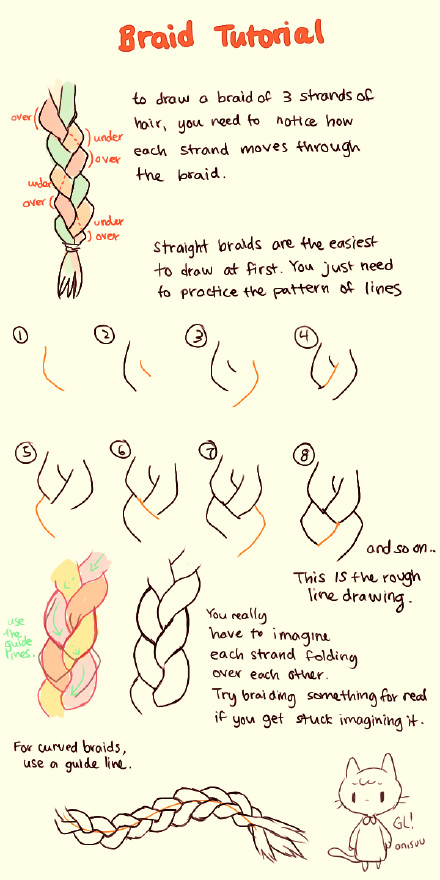 Braid Tutorial
to draw a braid of 3 strands of
hair, you need to notice how
each strand moves through
the braid.
over
under
over
under
over
under
over
straight braids are the easiest
to draw at first. You just need
to practice the pattern of lines
1
2
3
4
5
6
7
8
and so on..
This IS the rough
line drawing.
use
the
guide
lines.
You really
have to imagine
each strand folding
over each other.
Try braiding something for real
if you get stuck imagining it.
For curved braids,
use a guide line.
GL!
onisuu